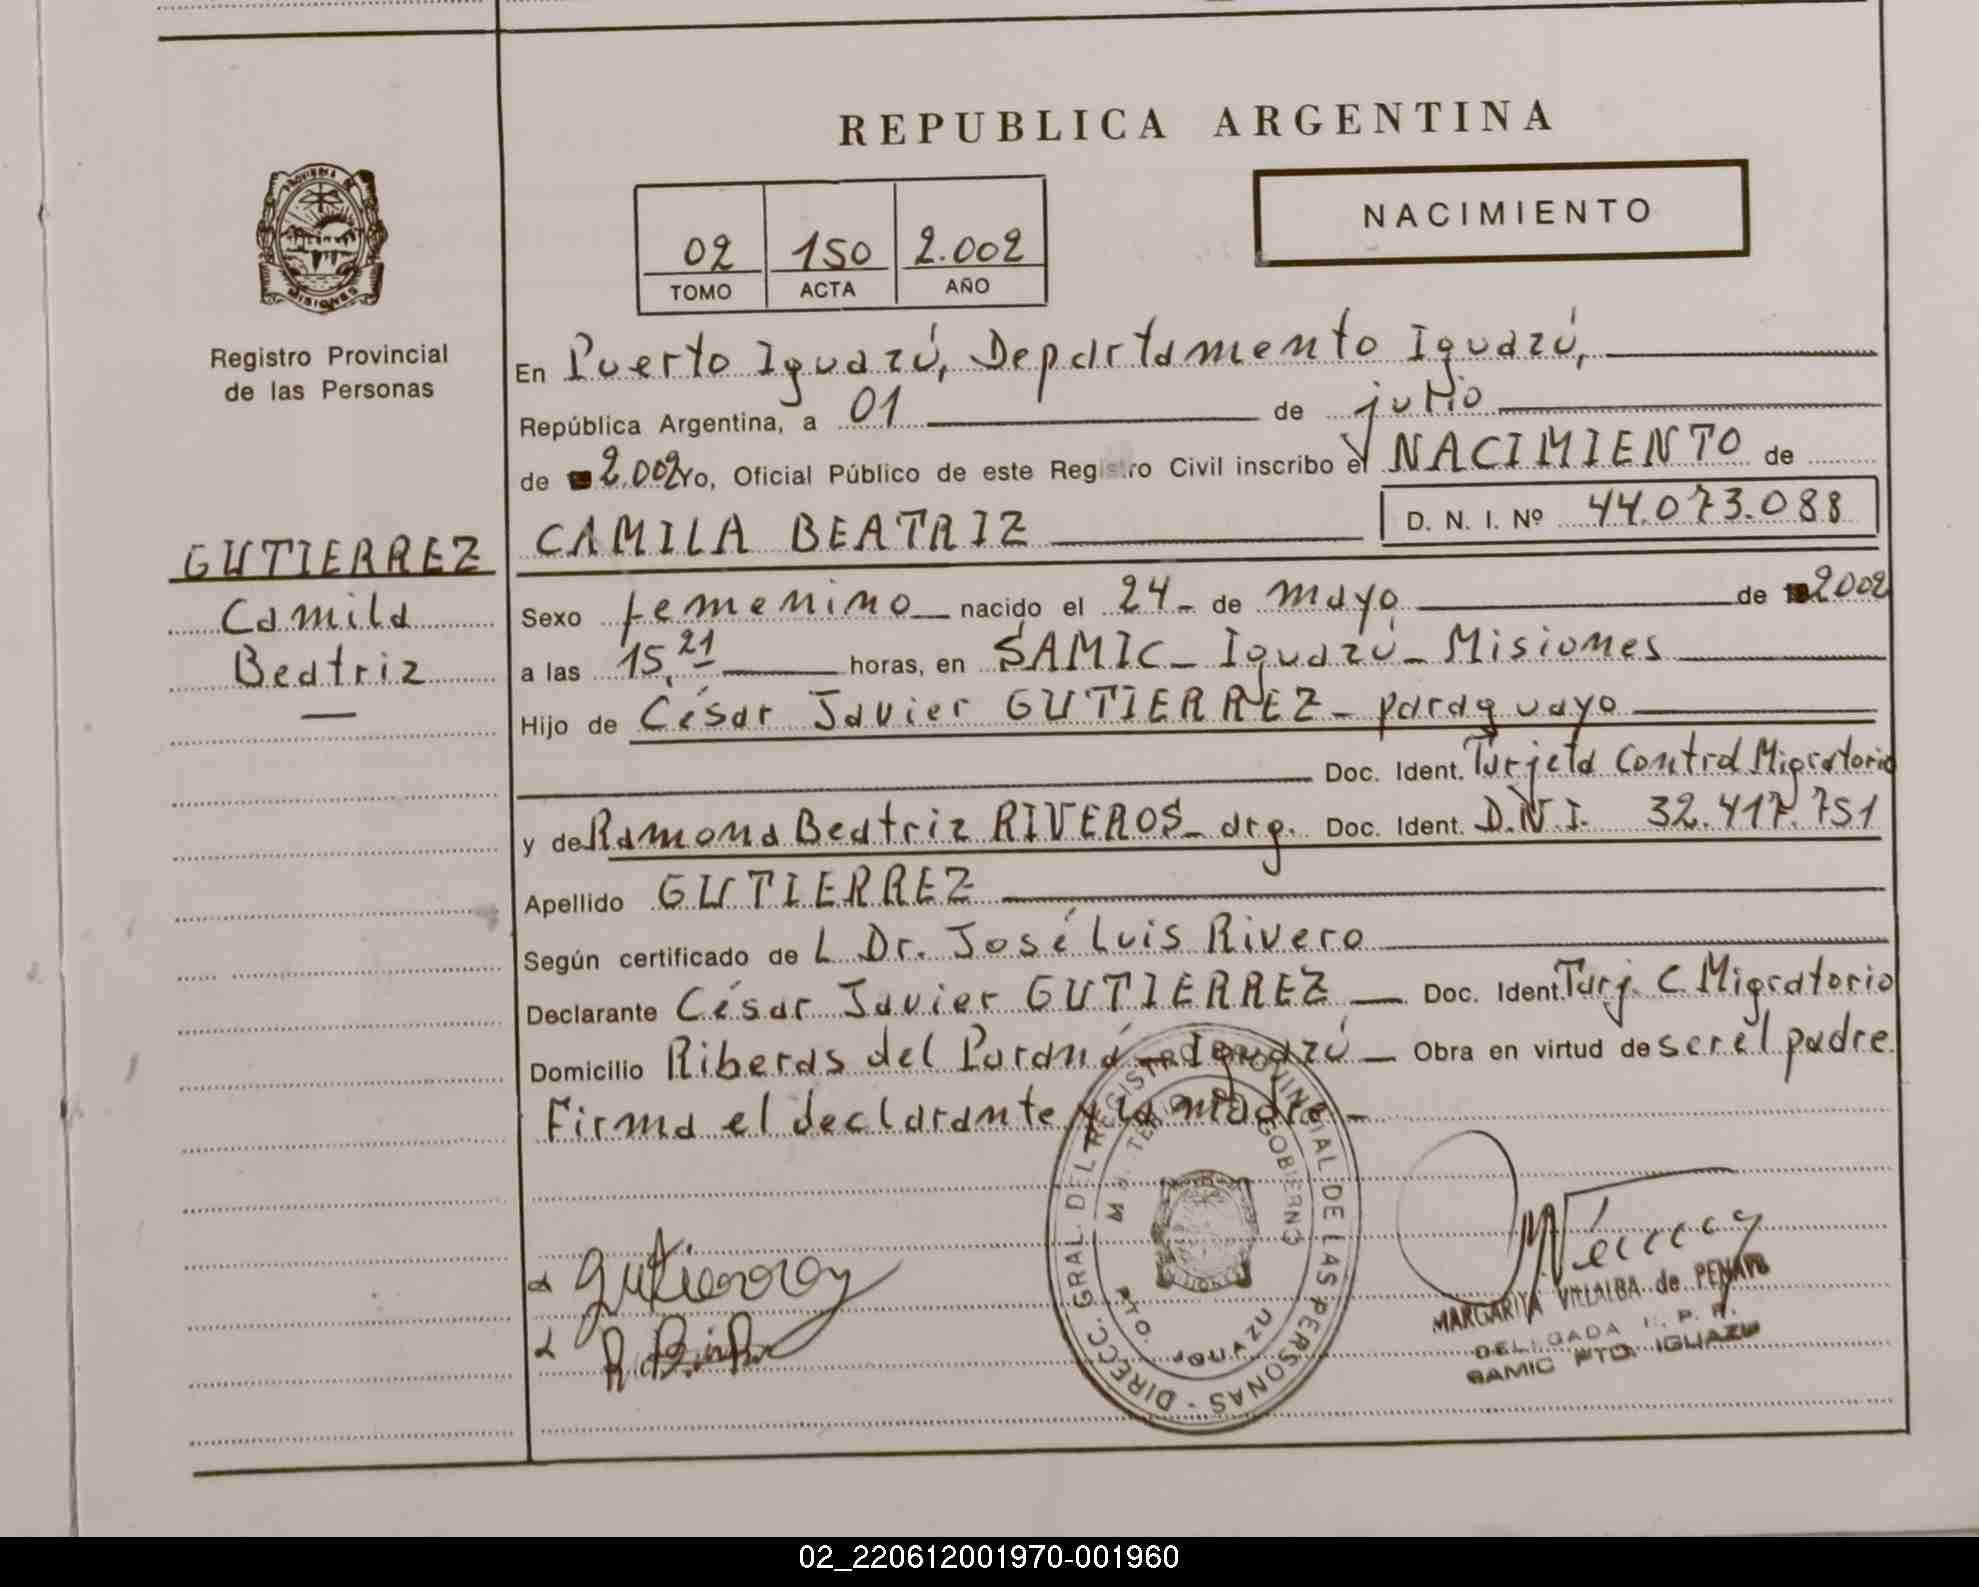 REPUBLICA ARGENTINA
NACIMIENTO
02 150 2.002
TOMO ACTA AÑO
PROVINCIA DE
MISIONES
Registro Provincial
de las Personas
GUTIERREZ
Camila
Beatriz
En Puerto Iguazú, Departamento Iguazú,
República Argentina, a 01 de julio
de 2.002 yo, Oficial Público de este Registro Civil inscribo el NACIMIENTO de
CAMILA BEATRIZ D. N. I. Nº 44.073.088
Sexo femenino nacido el 24 - de mayo de 2002
a las 15,21 horas, en SAMIC - Iguazú - Misiones
Hijo de César Javier GUTIERREZ - paraguayo
Doc. Ident. Tarjeta Control Migratorio
y de Ramona Beatriz RIVEROS - arg. Doc. Ident. D.N.I. 32.417.751
Apellido GUTIERREZ
Según certificado de L Dr. José Luis Rivero
Declarante César Javier GUTIERREZ — Doc. Ident. Tarj. C. Migratorio
Domicilio Riberas del Paraná - Iguazú — Obra en virtud de ser el padre
Firma el declarante y la madre -
DIRECC. GRAL. DEL REGISTRO PROVINCIAL DE LAS PERSONAS -
GOBIERNO
PTO. IGUAZU
MARGARITA VILLALBA de
SAMIC PTO. IGUAZU
02_220612001970-001960